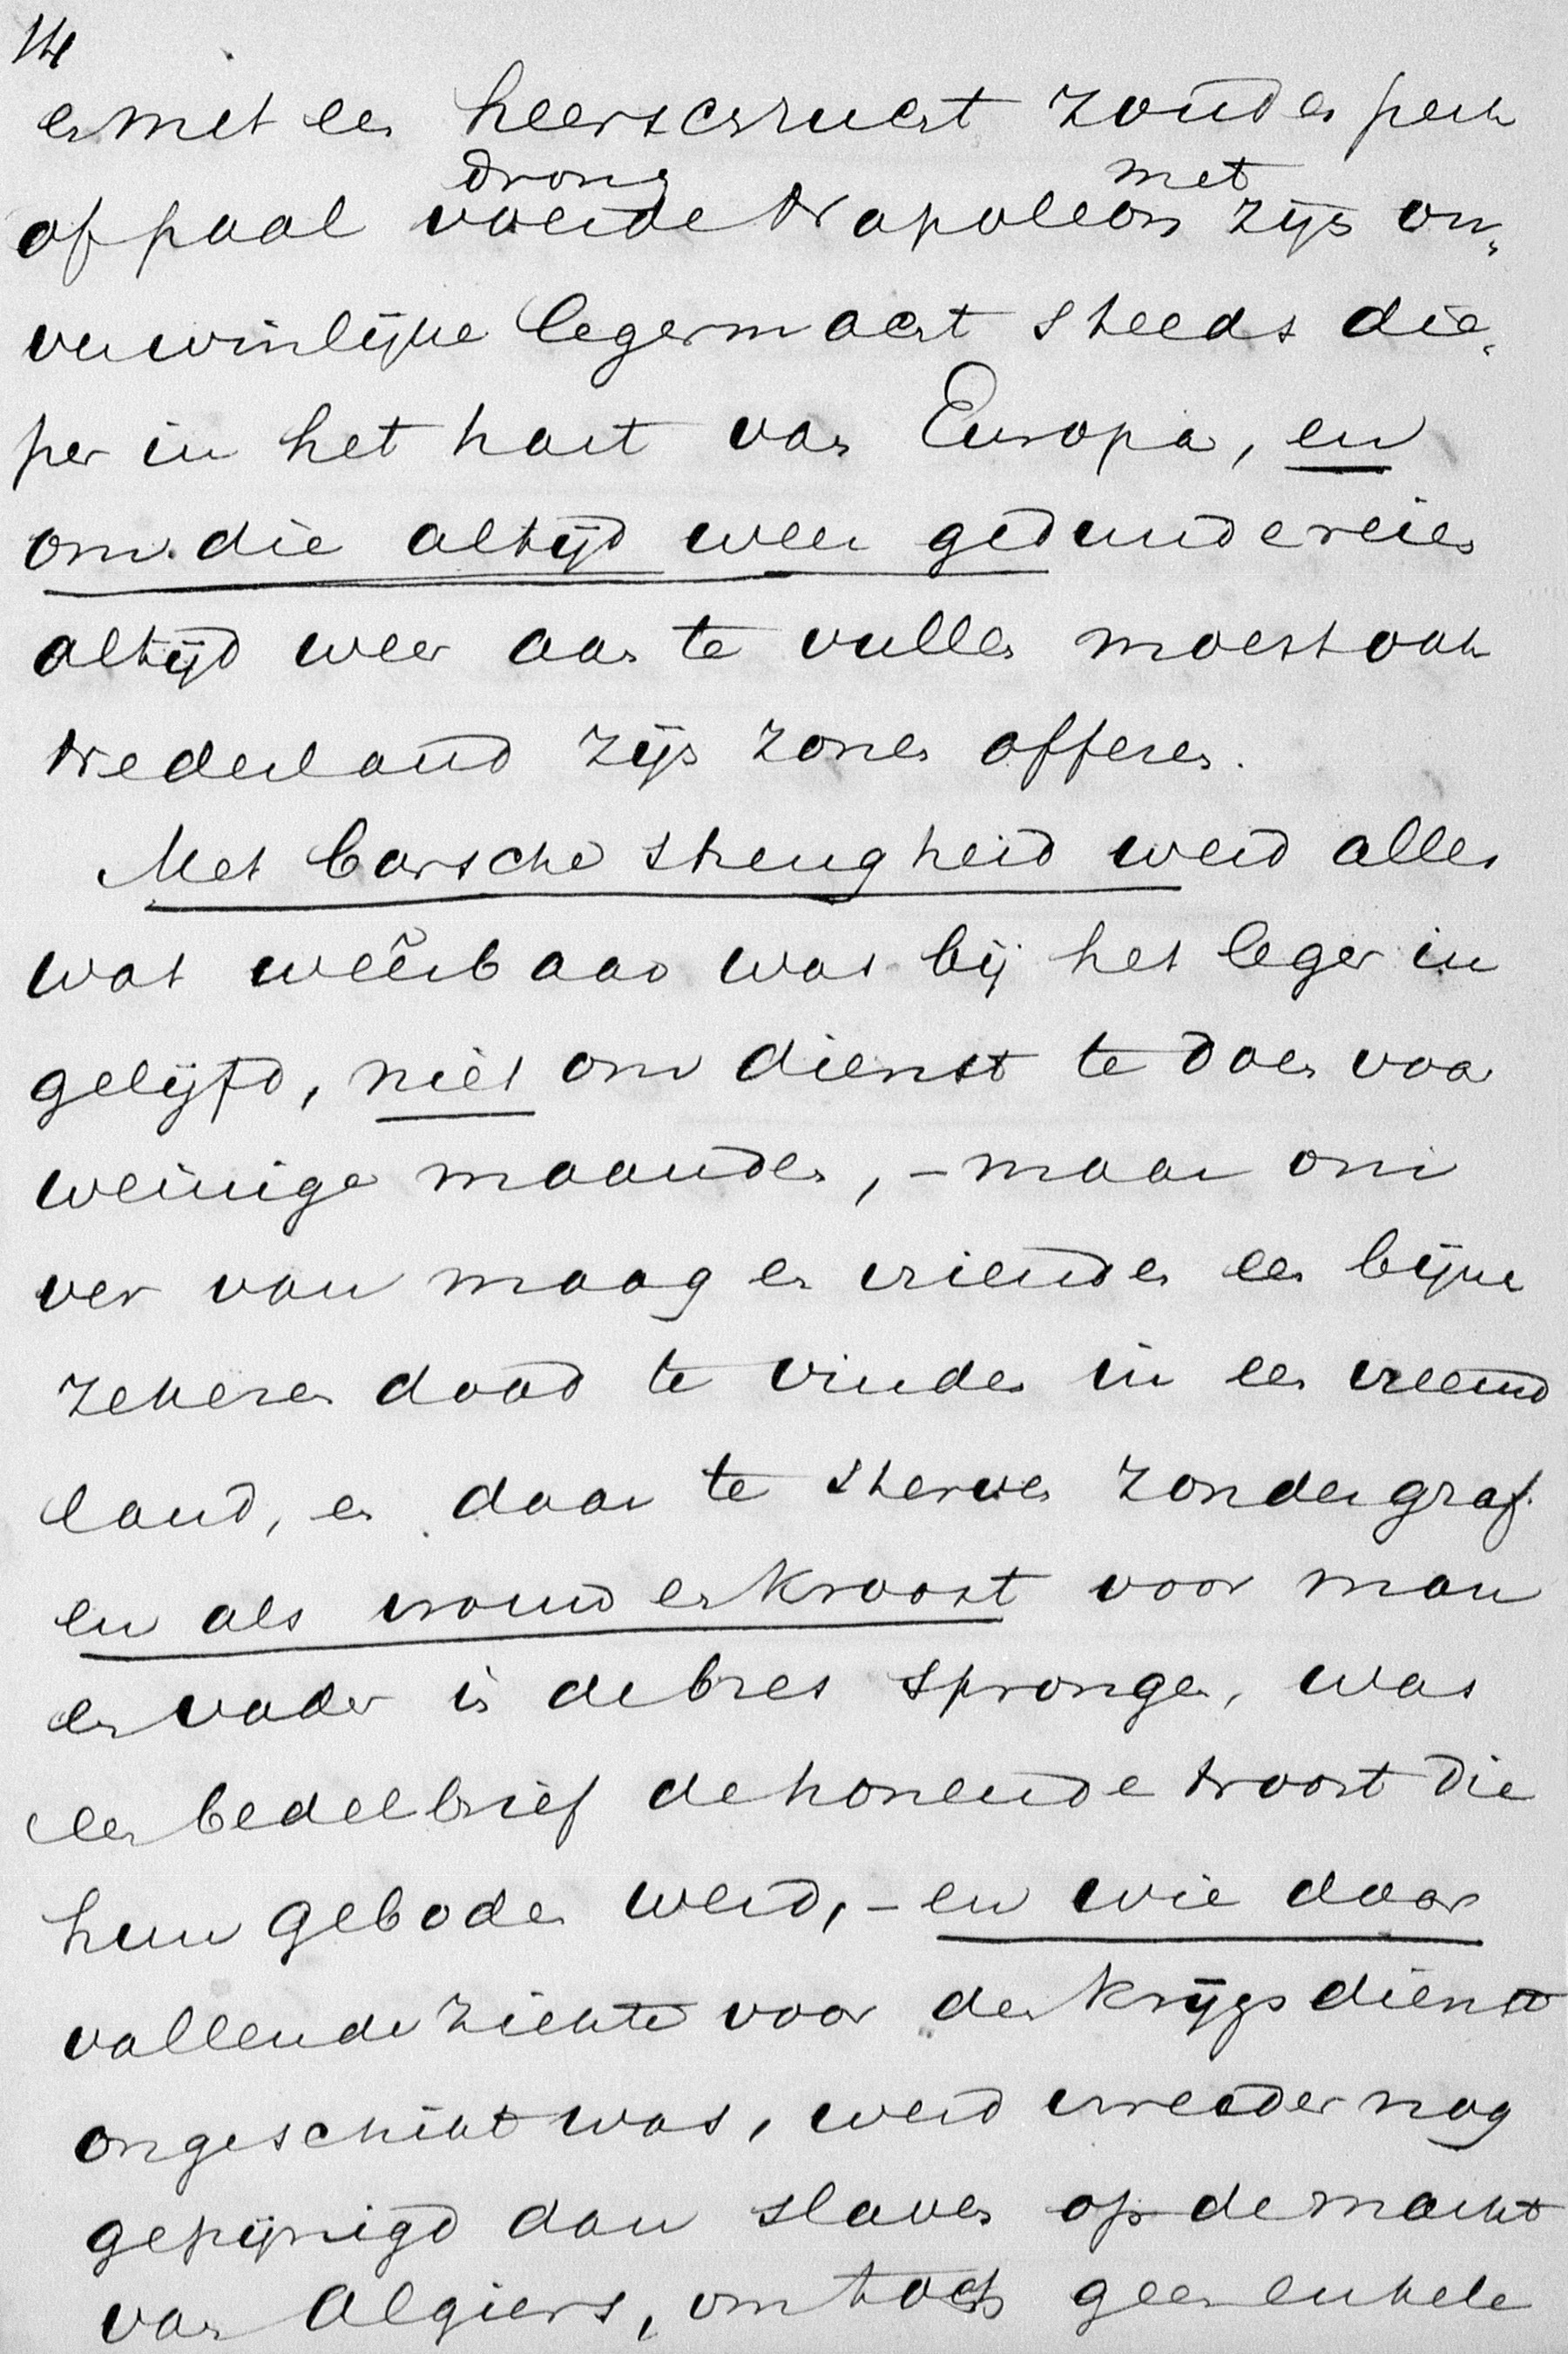 14
en met een heerschzucht zonder perk
drong met
of paal voerde Napoleon zijn on„
verwinlijke legermacht steeds die„
per in het hart van Europa, en
om die altijd weer gedundereien
altijd weer aan te vullen moest ook
Nederland zijn zonen offeren.
Met barsche strengheid werd alles
wat weêrbaar was bij het leger in
gelijfd, niet om dienst te doen voor
weinige maanden, – maar om
ver van maag en vrienden een bijna
zekeren dood te vinden in een vreemd
land, en daar te sterven zonder graf.
en als vrouw en kroost voor man
en vader in de bres sprongen, was
een bedelbrief de honende troost die
hun geboden werd, – en wie door
vallende ziekte voor den krijgsdienst
ongeschikt was, werd wreeder nog
gepijnigd dan slaven op de markt
van Algiers, om toch geen enkele